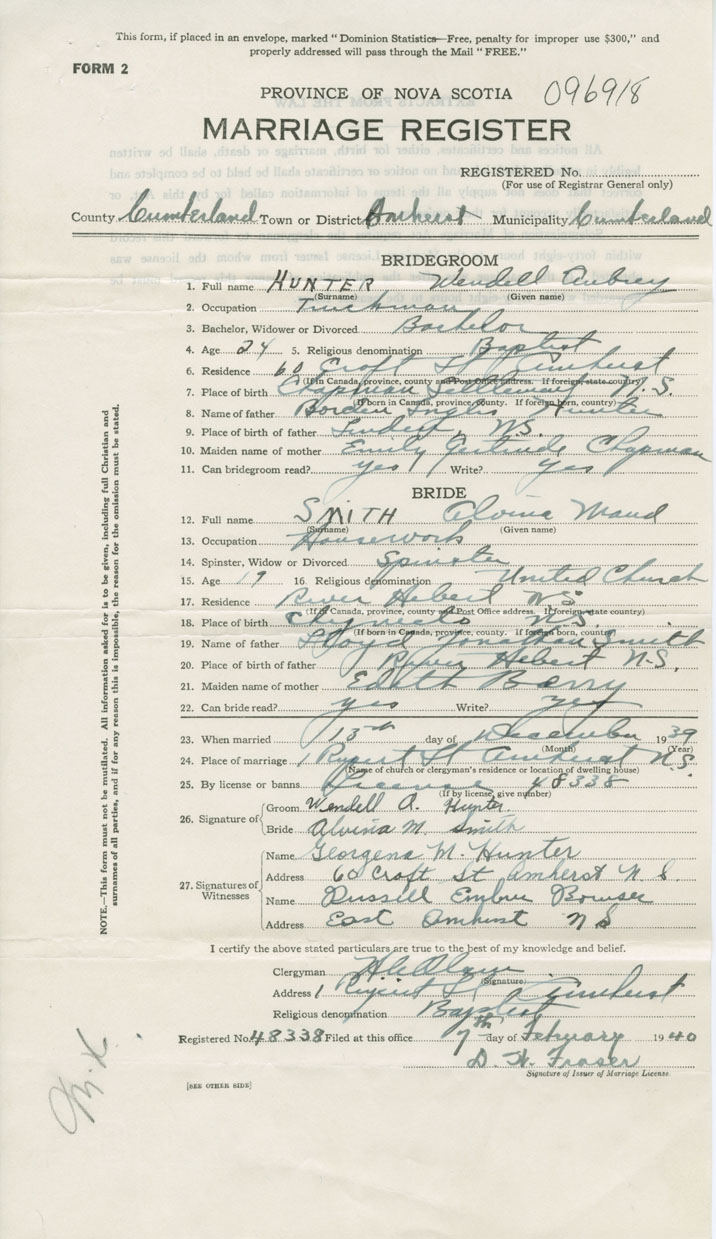 This form, if placed in an envelope, marked "Dominion Statistics—Free, penalty for improper use $300," and
properly addressed will pass through the Mail "FREE."
FORM 2
PROVINCE OF NOVA SCOTIA 096918
MARRIAGE REGISTER
REGISTERED No.
(For use of Registrar General only)
County Cumberland Town or District Amherst Municipality Cumberland
BRIDEGROOM
1. Full name HUNTER Wendell Aubrey
(Surname) (Given name)
2. Occupation Truckman
3. Bachelor, Widower or Divorced Bachelor
4. Age 24 5. Religious denomination Baptist
6. Residence 60 Croft St Amherst
(If in Canada, province, county and Post Office address. If foreign, state country)
7. Place of birth Chapman Settlement N.S.
(If born in Canada, province, county. If foreign born, country)
8. Name of father Borden Inglis Hunter
9. Place of birth of father Linden, N.S.
10. Maiden name of mother Emily Gertrude Chapman
11. Can bridegroom read? yes Write? yes
BRIDE
12. Full name SMITH Alvina Maud
(Surname) (Given name)
13. Occupation Housework
14. Spinster, Widow or Divorced Spinster
15. Age 19 16. Religious denomination United Church
17. Residence River Hebert NS
(If in Canada, province, county and Post Office address. If foreign, state country)
18. Place of birth N.S.
(If born in Canada, province, county. If foreign born, country)
19. Name of father Lloyd Jonathan Smith
20. Place of birth of father River Hebert N.S.
21. Maiden name of mother Edith Berry
22. Can bride read? yes Write? yes
23. When married 13th day of December 1939
(Month) (Year)
24. Place of marriage 1 Rupert St Amherst N.S.
(Name of church or clergyman's residence or location of dwelling house)
25. By license or banns License 48338
(If by license, give number)
26. Signature of Groom Wendell A. Hunter.
Bride Alvina M. Smith
27. Signatures of Witnesses Name Georgena M. Hunter
Address 60 Croft St Amherst N S.
Name Russell Bowser
Address East Amherst N S
I certify the above stated particulars are true to the best of my knowledge and belief.
Clergyman
(Signature)
Address 1 Rupert St Amherst
Religious denomination Baptist
Registered No. 48338 Filed at this office 7th day of February 1940
D. W. Fraser
Signature of Issuer of Marriage License.
[SEE OTHER SIDE]
NOTE.—This form must not be mutilated. All information asked for is to be given, including full Christian and
surnames of all parties, and if for any reason this is impossible, the reason for the omission must be stated.